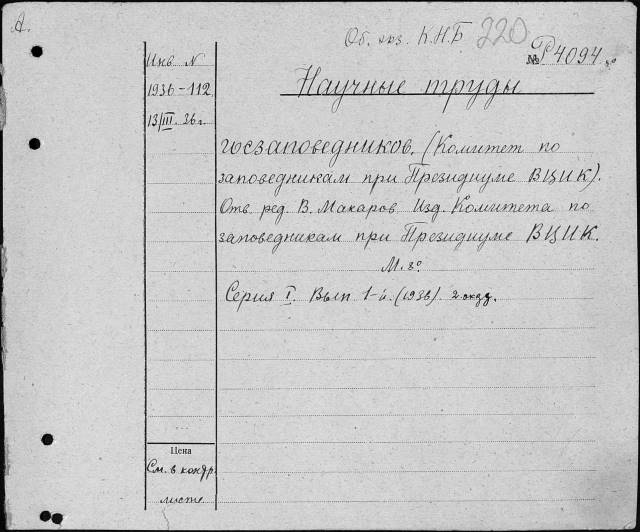 А.
Об. экз. К.Н.Б 220
№ Р4094 8°
Инв N
1936-112
13/III. 36 г.
Научные труды
госзаповедников. (Комитет по
заповедникам при Президиуме ВЦИК).
Отв. ред. В. Макаров Изд. Комитета по
заповедникам при Президиуме ВЦИК.
М. 8°
Серия I. Вып 1-й. (1936) 2 экзд.
Цена
См. в контр.
листе